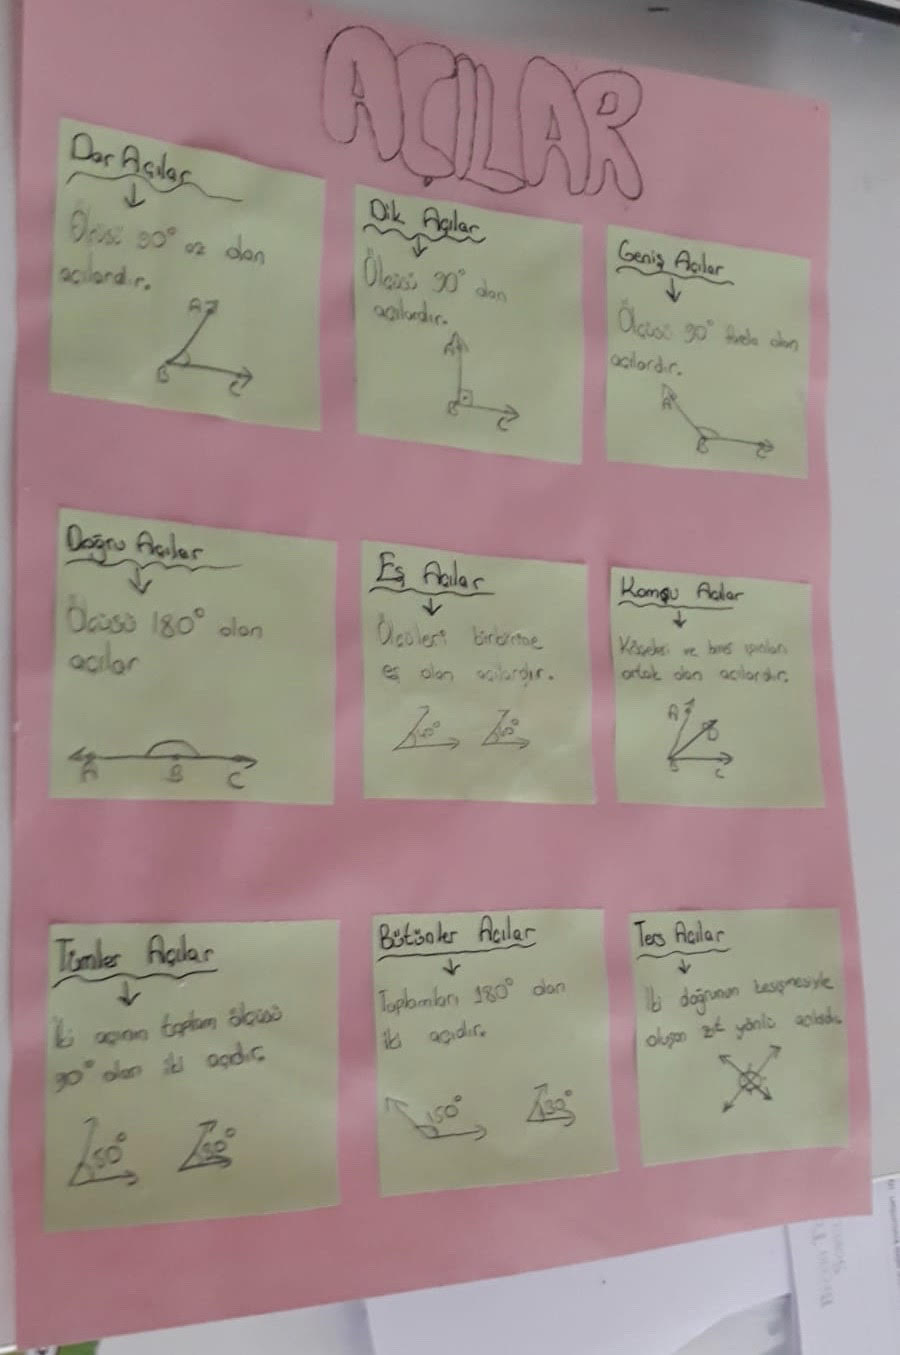 AÇILAR
Dar Açılar
Ölçüsü 90° az olan
açılardır.
A
B
C
Dik Açılar
Ölçüsü 90° olan
açılardır.
A
B
C
Geniş Açılar
Ölçüsü 90° fazla olan
açılardır.
A
B
C
Doğru Açılar
Ölçüsü 180° olan
açılar
A B C
Eş Açılar
Ölçüleri birbirine
eş olan açılardır.
Komşu Açılar
Köşeleri ve birer ışınları
ortak olan açılardır.
A
D
B
C
Tümler Açılar
İki açının toplam ölçüsü
90° olan iki açıdır.
50°
Bütünler Açılar
Toplamları 180° olan
iki açıdır.
150° 30°
Ters Açılar
İki doğrunun kesişmesiyle
oluşan zıt yönlü açılardır.